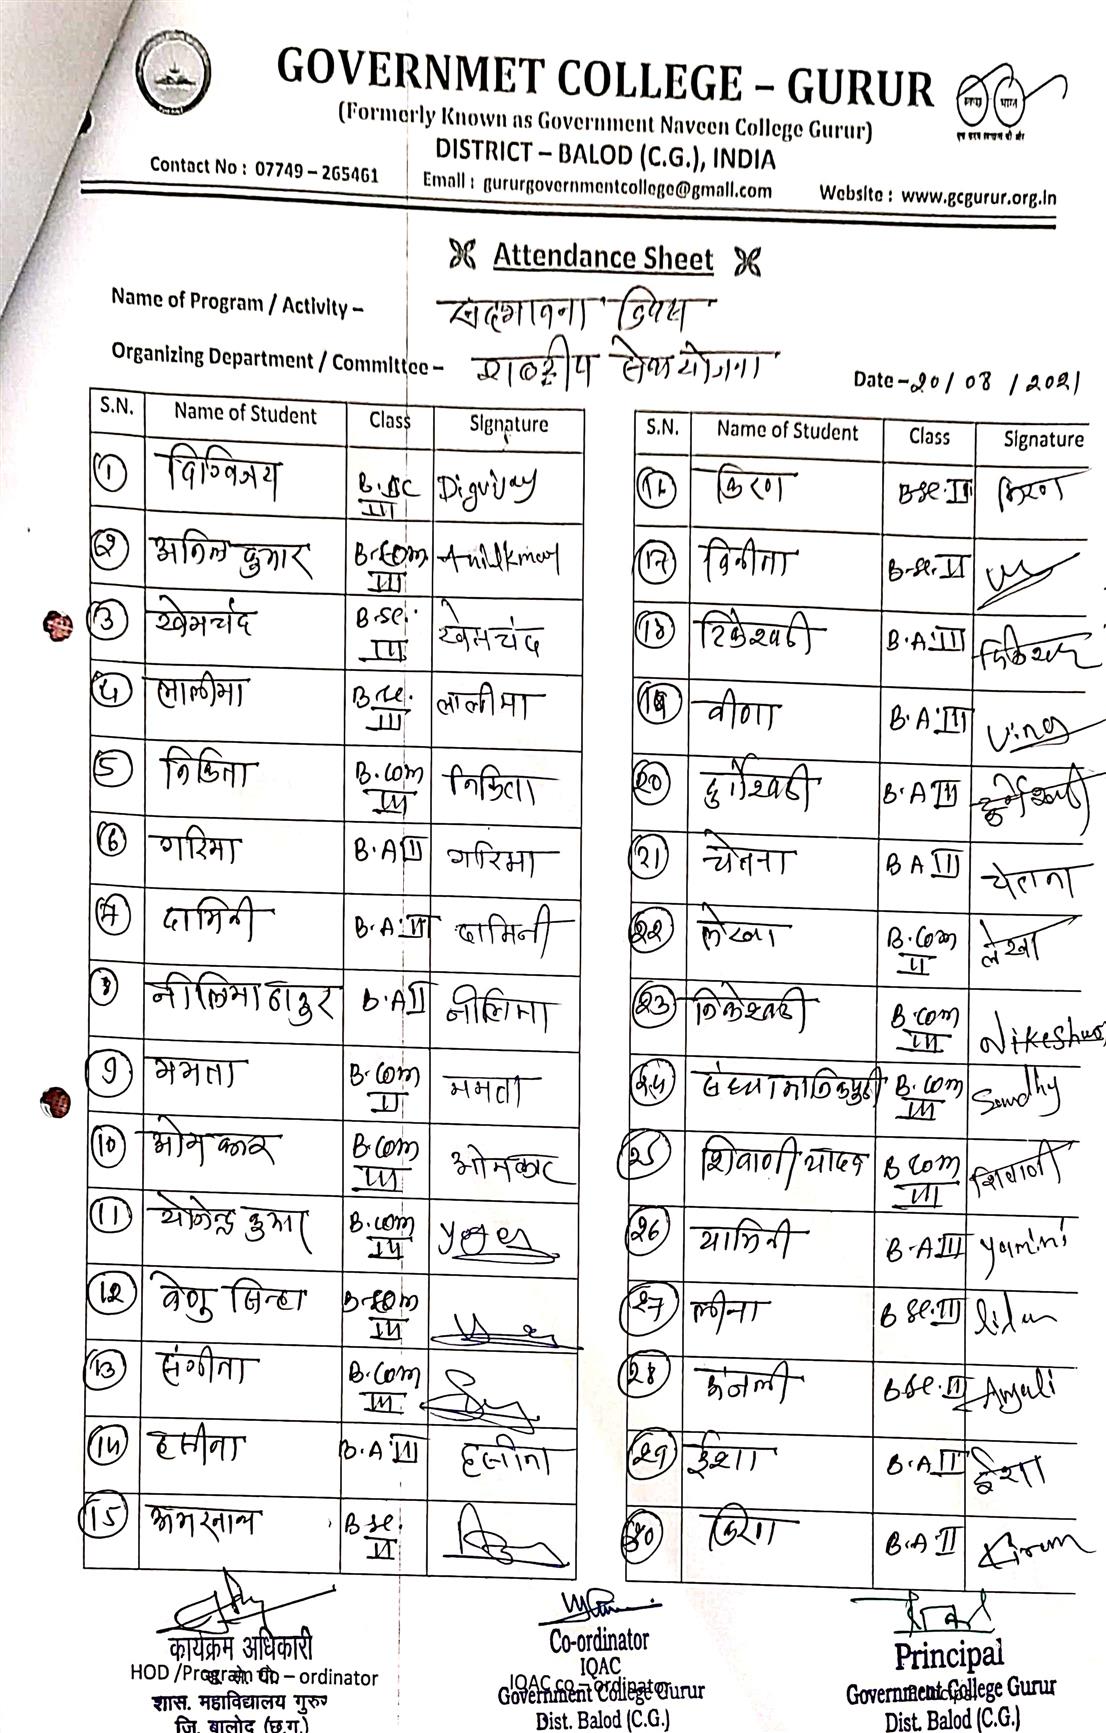 GOVERNMET COLLEGE – GURUR
(Formerly Known as Government Naveen College Gurur)
DISTRICT – BALOD (C.G.), INDIA
Contact No : 07749 – 265461 Email : gururgovernmentcollege@gmail.com Website : www.gcgurur.org.in
Attendance Sheet
Name of Program / Activity – सदभावना दिवस
Organizing Department / Committee – राष्ट्रीय सेवा योजना
Date – 20/08/2021
S.N. Name of Student Class Signature
1 दिग्विजय B.Sc III Digvijay
2 अनिल कुमार B.com III Anilkmar
3 खेमचंद B.sc. III खेमचंद
4 लालीमा B.sc. III लालीमा
5 निकिता B.com III निकिता
6 गरिमा B.A II गरिमा
7 दामिनी B.A. II दामिनी
8 नीलिमा ठाकुर B.A II नीलिमा
9 ममता B.com II ममता
10 ओमकार B.com III ओमकार
11 योगेन्द्र कुमार B.com III
12 वेणु सिन्हा B.com III
13 संगीता B.com III
14 हसीना B.A. III हसीना
15 अमरनाथ B.sc. II
S.N. Name of Student Class Signature
16 किरण B.sc. II किरण
17 विनीता B.sc. II
18 टिकेश्वरी B.A. III
19 वीणा B.A. III Vina
20 दुर्गेश्वरी B.A III दुर्गेश्वरी
21 चेतना B A III चेतना
22 लेखा B.com II लेखा
23 निकेश्वरी B.com III Nikeshwa
24 संध्या मानिकपुरी B.com III Sandhy
25 शिवानी यादव B com III शिवानी
26 यामिनी B.A III Yamini
27 लीना B sc. III
28 अंजली B sc. II Anjali
29 ईशा B.A II ईशा
30 किरण B.A II Kiran
कार्यक्रम अधिकारी
HOD /Program co – ordinator
शास. महाविद्यालय गुरुर
जि. बालोद (छ.ग.)
Co-ordinator
IQAC
IQAC co – ordinator
Government College Gurur
Dist. Balod (C.G.)
Principal
Principal
Government College Gurur
Dist. Balod (C.G.)